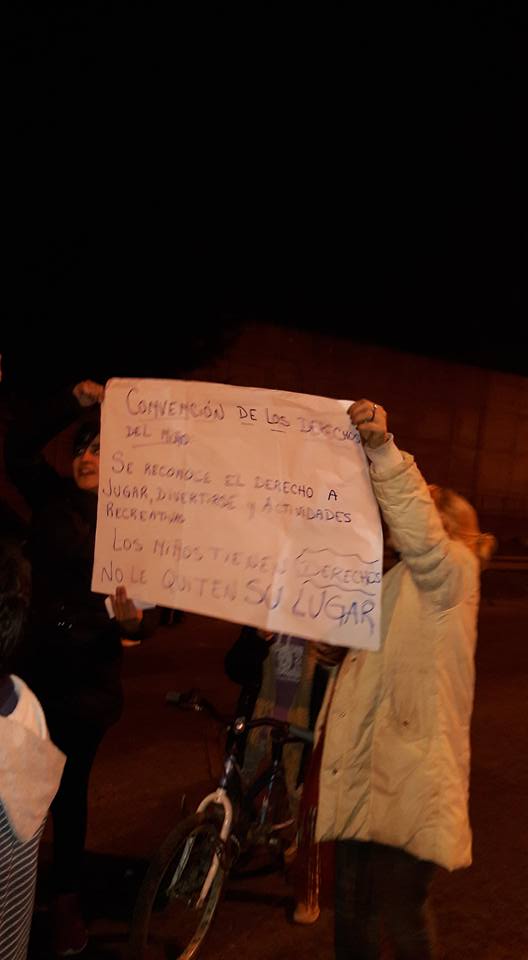 CONVENCIÓN DE LOS DERECHOS
DEL NIÑO
SE RECONOCE EL DERECHO A
JUGAR, DIVERTIRSE Y ACTIVIDADES
RECREATIVAS
LOS NIÑOS TIENEN DERECHOS
NO LE QUITEN SU LUGAR